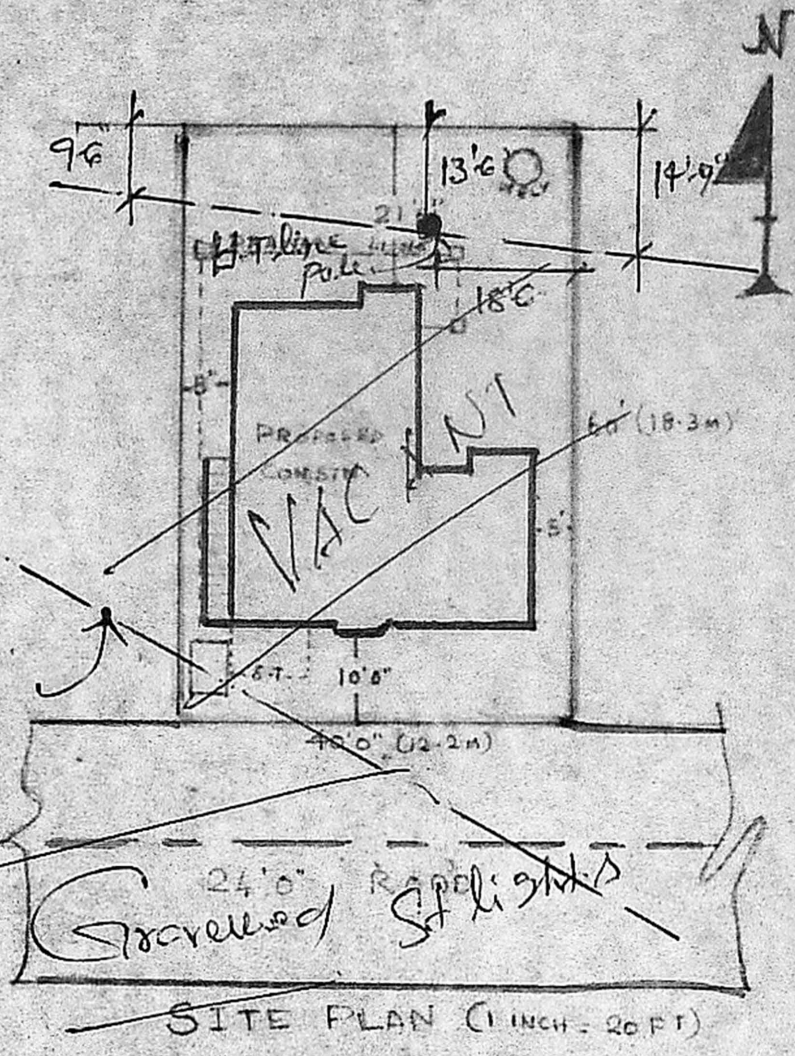 N
9'6"
13'6
14'-9"
WELL
21'
H.T. line
Pole
18'6
5'
60' (18.3M)
PROPOSED
CONSTN
VACANT
5'
S.T.
10'0"
40'0" (12.2M)
24'0" ROAD
Gravelled St lights
SITE PLAN (1 INCH = 20 FT)